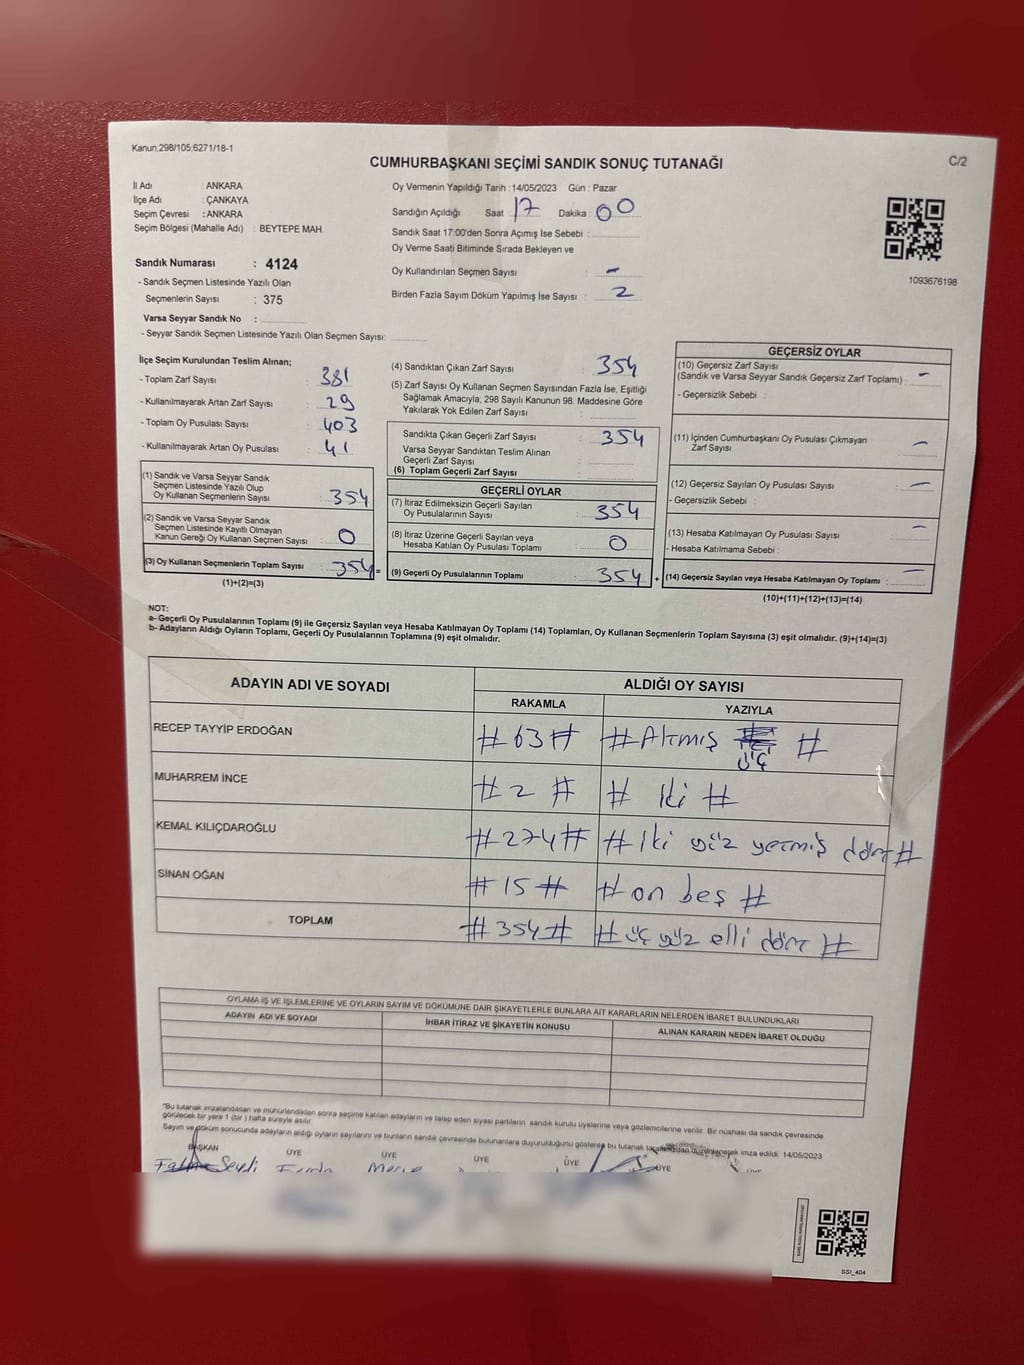 Kanun,298/105;6271/18-1
C/2
CUMHURBAŞKANI SEÇİMİ SANDIK SONUÇ TUTANAĞI
İl Adı : ANKARA
İlçe Adı : ÇANKAYA
Seçim Çevresi : ANKARA
Seçim Bölgesi (Mahalle Adı) : BEYTEPE MAH.
Sandık Numarası : 4124
- Sandık Seçmen Listesinde Yazılı Olan
Seçmenlerin Sayısı : 375
Varsa Seyyar Sandık No :
- Seyyar Sandık Seçmen Listesinde Yazılı Olan Seçmen Sayısı:
Oy Vermenin Yapıldığı Tarih : 14/05/2023 Gün : Pazar
Sandığın Açıldığı Saat : 17 Dakika : 00
Sandık Saat 17:00'den Sonra Açımış İse Sebebi :
Oy Verme Saati Bitiminde Sırada Bekleyen ve
Oy Kullandırılan Seçmen Sayısı : -
Birden Fazla Sayım Döküm Yapılmış İse Sayısı : 2
1093676198
İlçe Seçim Kurulundan Teslim Alınan;
- Toplam Zarf Sayısı : 381
- Kullanılmayarak Artan Zarf Sayısı : 29
- Toplam Oy Pusulası Sayısı : 403
- Kullanılmayarak Artan Oy Pusulası : 41
(1) Sandık ve Varsa Seyyar Sandık
Seçmen Listesinde Yazılı Olup
Oy Kullanan Seçmenlerin Sayısı : 354
(2) Sandık ve Varsa Seyyar Sandık
Seçmen Listesinde Kayıtlı Olmayan
Kanun Gereği Oy Kullanan Seçmen Sayısı : 0
(3) Oy Kullanan Seçmenlerin Toplam Sayısı : 354 =
(1)+(2)=(3)
(4) Sandıktan Çıkan Zarf Sayısı : 354
(5) Zarf Sayısı Oy Kullanan Seçmen Sayısından Fazla İse, Eşitliği
Sağlamak Amacıyla; 298 Sayılı Kanunun 98. Maddesine Göre
Yakılarak Yok Edilen Zarf Sayısı :
Sandıkta Çıkan Geçerli Zarf Sayısı : 354
Varsa Seyyar Sandıktan Teslim Alınan
Geçerli Zarf Sayısı :
(6) Toplam Geçerli Zarf Sayısı :
GEÇERLİ OYLAR
(7) İtiraz Edilmeksizin Geçerli Sayılan
Oy Pusulalarının Sayısı : 354
(8) İtiraz Üzerine Geçerli Sayılan veya
Hesaba Katılan Oy Pusulası Toplamı : 0
(9) Geçerli Oy Pusulalarının Toplamı : 354 +
GEÇERSİZ OYLAR
(10) Geçersiz Zarf Sayısı
(Sandık ve Varsa Seyyar Sandık Geçersiz Zarf Toplamı) : -
- Geçersizlik Sebebi :
(11) İçinden Cumhurbaşkanı Oy Pusulası Çıkmayan
Zarf Sayısı : -
(12) Geçersiz Sayılan Oy Pusulası Sayısı : -
- Geçersizlik Sebebi :
(13) Hesaba Katılmayan Oy Pusulası Sayısı : -
- Hesaba Katılmama Sebebi :
(14) Geçersiz Sayılan veya Hesaba Katılmayan Oy Toplamı : -
(10)+(11)+(12)+(13)=(14)
NOT:
a- Geçerli Oy Pusulalarının Toplamı (9) ile Geçersiz Sayılan veya Hesaba Katılmayan Oy Toplamı (14) Toplamları, Oy Kullanan Seçmenlerin Toplam Sayısına (3) eşit olmalıdır. (9)+(14)=(3)
b- Adayların Aldığı Oyların Toplamı, Geçerli Oy Pusulalarının Toplamına (9) eşit olmalıdır.
ADAYIN ADI VE SOYADI ALDIĞI OY SAYISI
RAKAMLA YAZIYLA
RECEP TAYYİP ERDOĞAN #63# #Altmış üç #
MUHARREM İNCE #2# # iki #
KEMAL KILIÇDAROĞLU #274# #iki yüz yetmiş dört#
SİNAN OĞAN #15# #on beş #
TOPLAM #354# #üç yüz elli dört#
OYLAMA İŞ VE İŞLEMLERİNE VE OYLARIN SAYIM VE DÖKÜMÜNE DAİR ŞİKAYETLERLE BUNLARA AİT KARARLARIN NELERDEN İBARET BULUNDUKLARI
ADAYIN ADI VE SOYADI İHBAR İTİRAZ VE ŞİKAYETİN KONUSU ALINAN KARARIN NEDEN İBARET OLDUĞU
"Bu tutanak imzalandıktan ve mühürlendikten sonra seçime katılan adayların ve talep eden siyasi partilerin sandık kurulu üyelerine veya gözlemcilerine verilir. Bir nüshası da sandık çevresinde
görülecek bir yere 1 (bir) hafta süreyle asılır.
Sayım ve döküm sonucunda adayların aldığı oyların sayılarını ve bunların sandık çevresinde bulunanlara duyurulduğunu gösteren bu tutanak tarafımızdan düzenlenerek imza edildi. 14/05/2023
BAŞKAN ÜYE ÜYE ÜYE ÜYE ÜYE
SSI_404